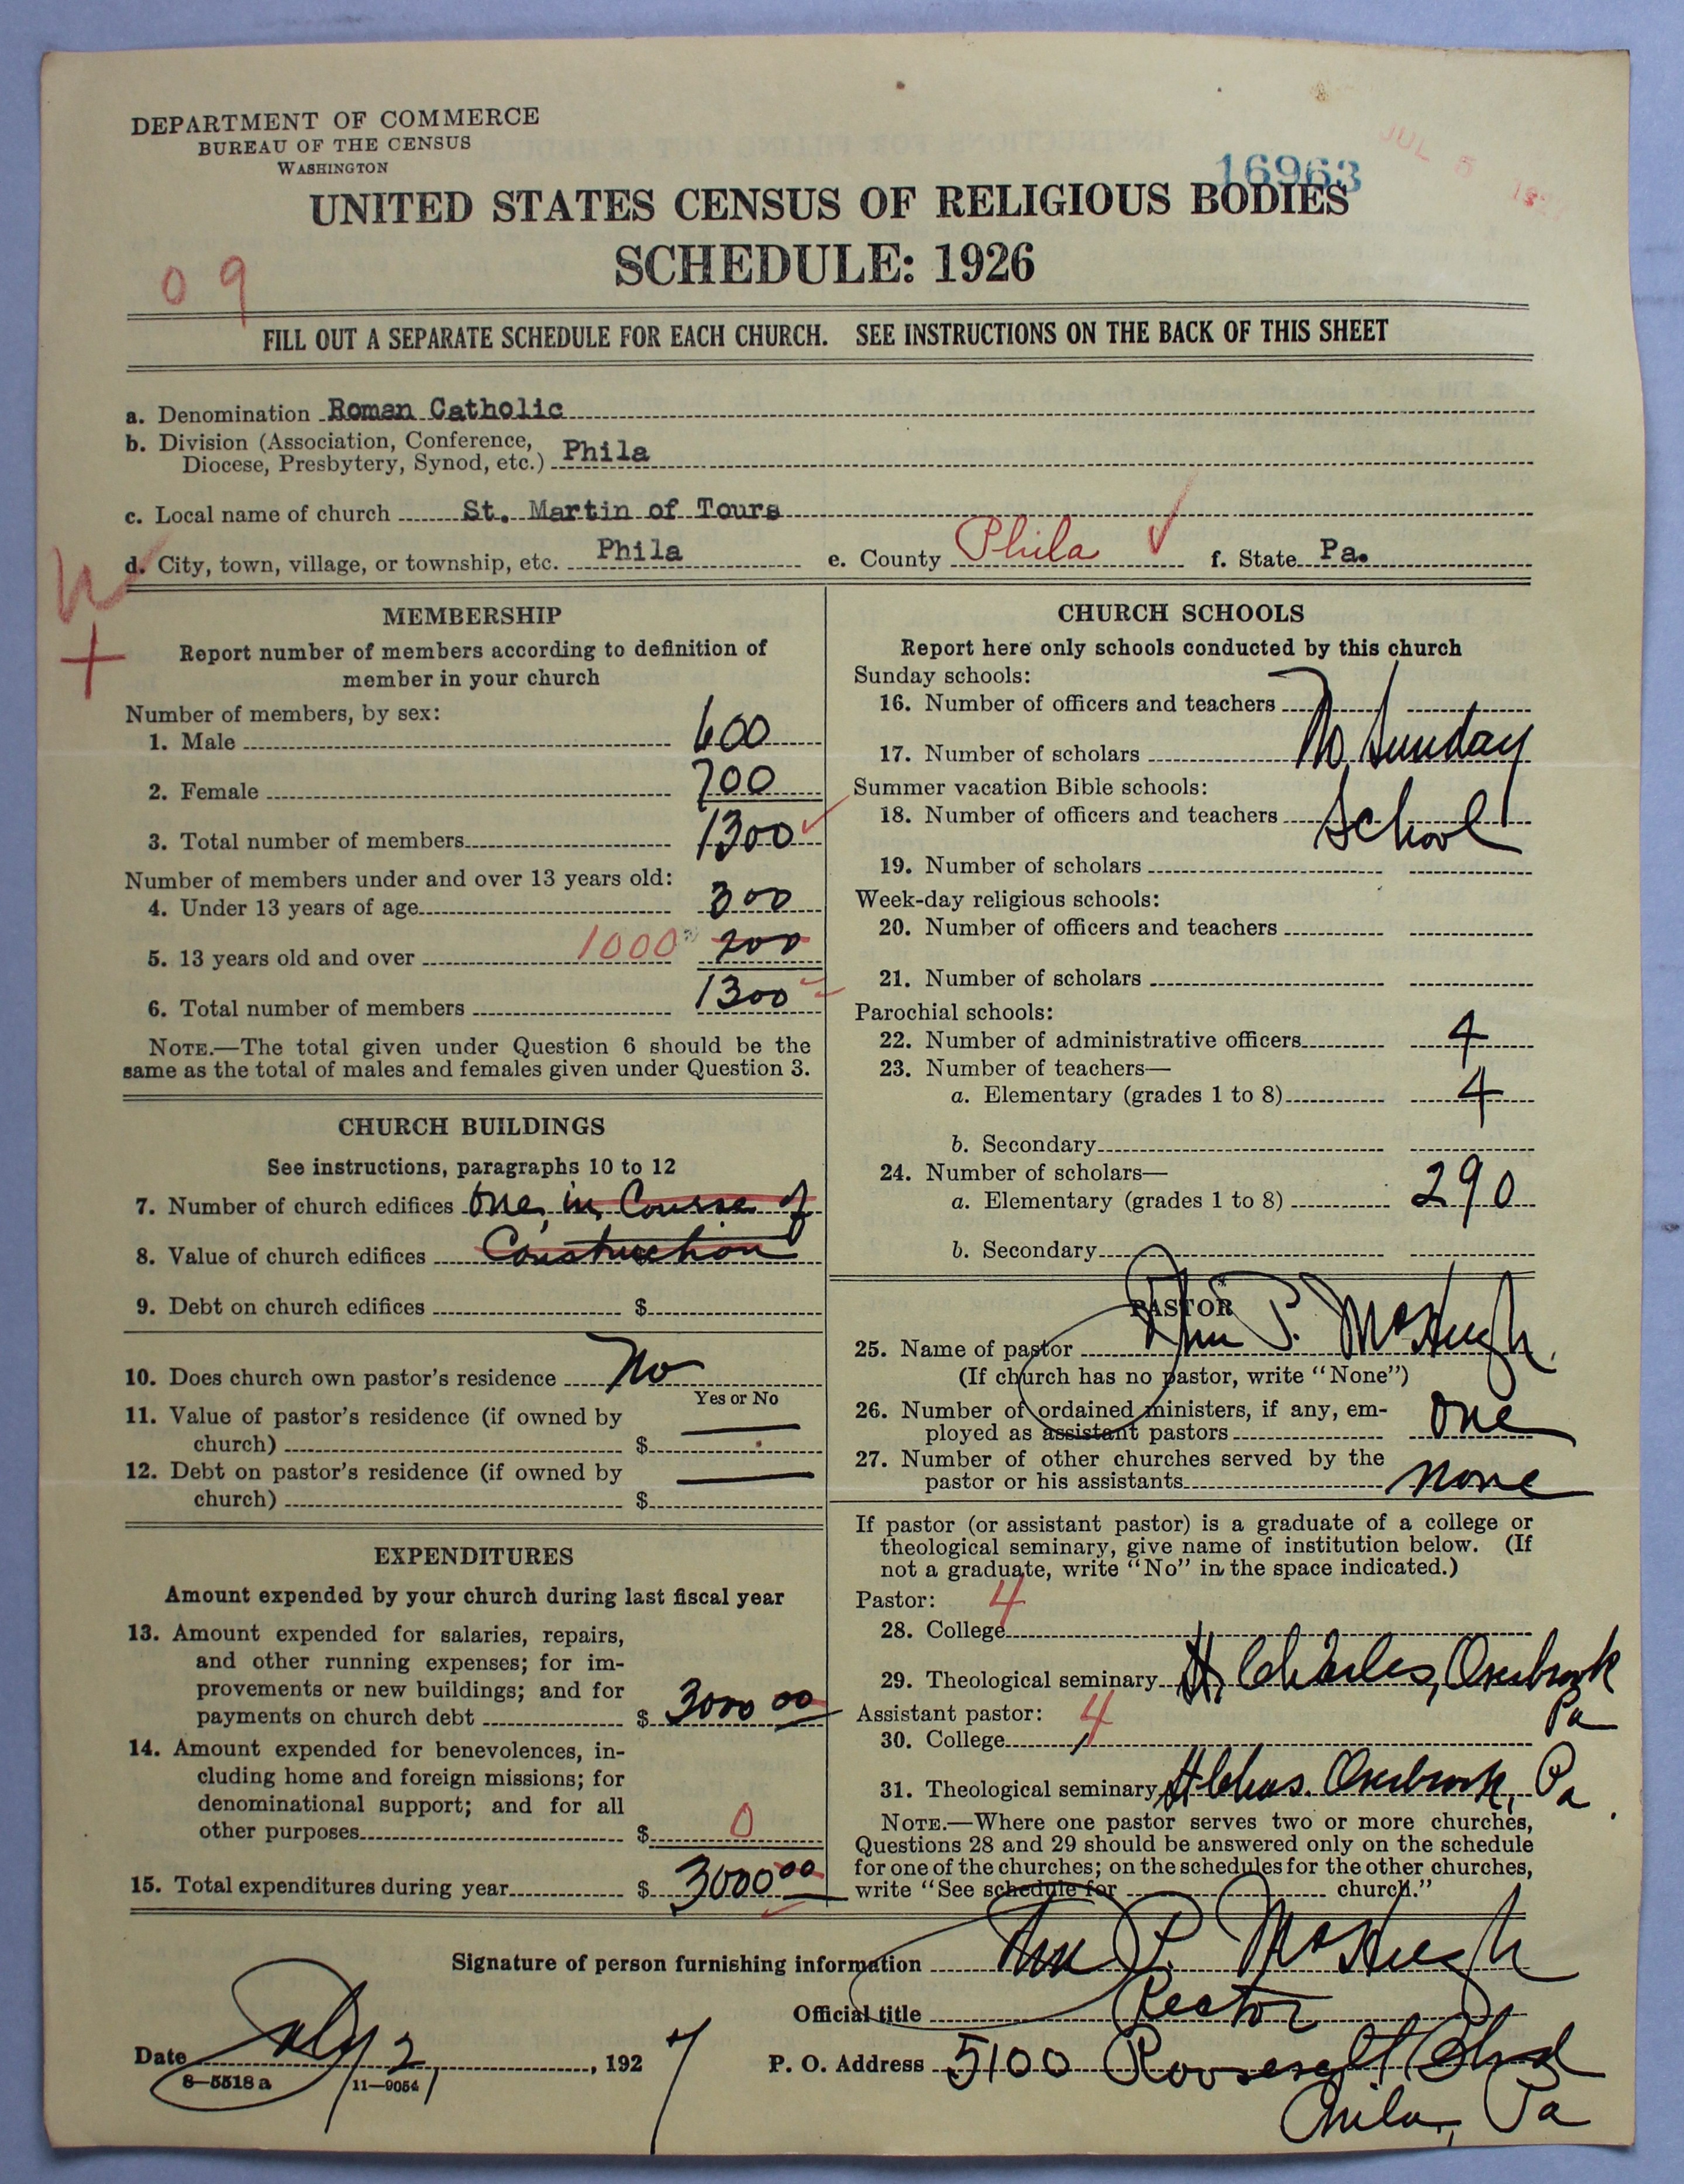 DEPARTMENT OF COMMERCE
BUREAU OF THE CENSUS
WASHINGTON
16963
JUL 5
UNITED STATES CENSUS OF RELIGIOUS BODIES
SCHEDULE: 1926
09
FILL OUT A SEPARATE SCHEDULE FOR EACH CHURCH. SEE INSTRUCTIONS ON THE BACK OF THIS SHEET
a. Denomination Roman Catholic
b. Division (Association, Conference, Diocese, Presbytery, Synod, etc.) Phila
c. Local name of church St. Martin of Tours
d. City, town, village, or township, etc. Phila e. County Phila ✓ f. State Pa.
MEMBERSHIP
Report number of members according to definition of
member in your church
Number of members, by sex:
1. Male 600
2. Female 700
3. Total number of members 1300
Number of members under and over 13 years old:
4. Under 13 years of age 300
5. 13 years old and over 1000 700
6. Total number of members 1300
NOTE.—The total given under Question 6 should be the
same as the total of males and females given under Question 3.
CHURCH BUILDINGS
See instructions, paragraphs 10 to 12
7. Number of church edifices One, in Course of
8. Value of church edifices $ Construction
9. Debt on church edifices $
10. Does church own pastor's residence No
Yes or No
11. Value of pastor's residence (if owned by
church) $ —
12. Debt on pastor's residence (if owned by
church) $ —
EXPENDITURES
Amount expended by your church during last fiscal year
13. Amount expended for salaries, repairs,
and other running expenses; for im-
provements or new buildings; and for
payments on church debt $ 3000 00
14. Amount expended for benevolences, in-
cluding home and foreign missions; for
denominational support; and for all
other purposes $ 0
15. Total expenditures during year $ 3000 00
CHURCH SCHOOLS
Report here only schools conducted by this church
Sunday schools:
16. Number of officers and teachers
17. Number of scholars No Sunday
Summer vacation Bible schools:
18. Number of officers and teachers School
19. Number of scholars
Week-day religious schools:
20. Number of officers and teachers
21. Number of scholars
Parochial schools:
22. Number of administrative officers 4
23. Number of teachers—
a. Elementary (grades 1 to 8) 4
b. Secondary
24. Number of scholars—
a. Elementary (grades 1 to 8) 290
b. Secondary
PASTOR
25. Name of pastor Wm P. McHugh
(If church has no pastor, write "None")
26. Number of ordained ministers, if any, em-
ployed as assistant pastors One
27. Number of other churches served by the
pastor or his assistants none
If pastor (or assistant pastor) is a graduate of a college or
theological seminary, give name of institution below. (If
not a graduate, write "No" in the space indicated.)
Pastor: 4
28. College
29. Theological seminary St. Charles, Overbrook
Pa
Assistant pastor: 4
30. College
31. Theological seminary St Chas. Overbrook, Pa.
NOTE.—Where one pastor serves two or more churches,
Questions 28 and 29 should be answered only on the schedule
for one of the churches; on the schedules for the other churches,
write "See schedule for church."
Signature of person furnishing information Wm P. McHugh
Official title Rector
Date July 2, 1927 P. O. Address 5100 Roosevelt Blvd
8—5518a 11—9054 Phila, Pa